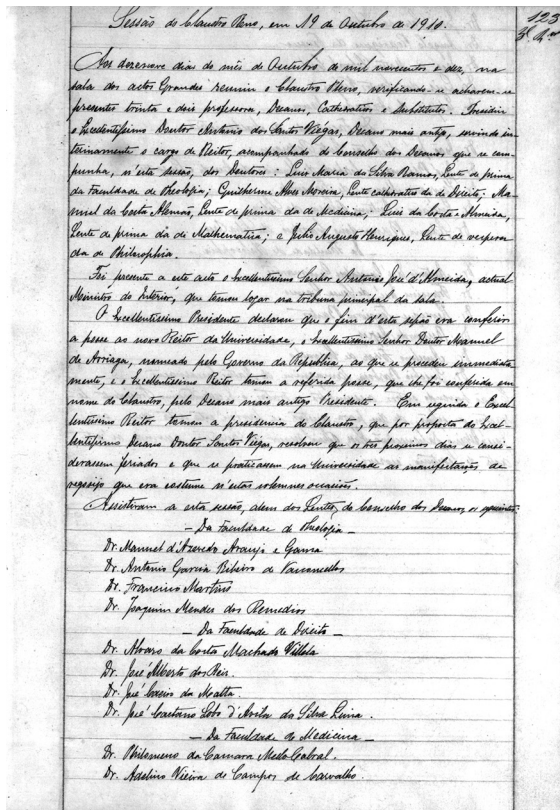 Sessão do Claustro Pleno, em 19 de Outubro de 1910.
123
Aos dezenove dias do mês de Outubro de mil novecentos e dez, na
sala dos actos Grandes reuniu o Claustro Pleno, verificando-se acharem-se
presentes trinta e dois professores, Decanos, Cathedraticos e Substitutos. Presidiu
o Excellentissimo Doutor Antonio dos Santos Viegas, Decano mais antigo, servindo in-
terinamente o cargo de Reitor, acompanhado do Conselho dos Decanos que se com-
punha, n'esta sessão, dos Doutores: Luis Maria da Silva Ramos, Lente de prima
da Faculdade de Theologia; Guilherme Alves Moreira, Lente cathedratico da de Direito; Ma-
nuel da Costa Alemão, Lente de prima da de Medicina; Luis da Costa e Almeida,
Lente de prima da de Mathematica; e Julio Augusto Henriques, Lente de vespera
da de Philosophia.
Foi presente a este acto o Excellentissimo Senhor Antonio José d'Almeida, actual
Ministro do Interior, que tomou logar na tribuna principal da sala.
O Excellentissimo Presidente declarou que o fim d'esta sessão era conferir
a posse ao novo Reitor da Universidade, o Excellentissimo Senhor Doutor Manuel
de Arriaga, nomeado pelo Governo da Republica, ao que se procedeu immediata-
mente, e o Excellentissimo Reitor tomou a referida posse, que lhe foi conferida em
nome do Claustro, pelo Decano mais antigo Presidente. Em seguida o Excel-
lentissimo Reitor tomou a presidencia do Claustro, que por proposta do Excel-
lentissimo Decano Doutor Santos Viegas, resolveu que os tres proximos dias se consi-
derassem feriados e que se praticassem na Universidade as manifestações de
regosijo que era costume n'estas solemnes occasiões.
Assistiram a esta sessão, alem dos Lentes do Conselho dos Decanos, os seguintes:
— Da Faculdade de Theologia —
Dr. Manuel d'Azevedo Araujo e Gama
Dr. Antonio Garcia Ribeiro de Vasconcellos
Dr. Francisco Martins
Dr. Joaquim Mendes dos Remedios
— Da Faculdade de Direito —
Dr. Alvaro da Costa Machado Villela
Dr. José Alberto dos Reis.
Dr. José Caeiro da Matta.
Dr. José Caetano Lobo d'Avila da Silva Lima.
— Da Faculdade de Medicina —
Dr. Philomeno da Camara Mello Cabral.
Dr. Adelino Vieira de Campos de Carvalho.